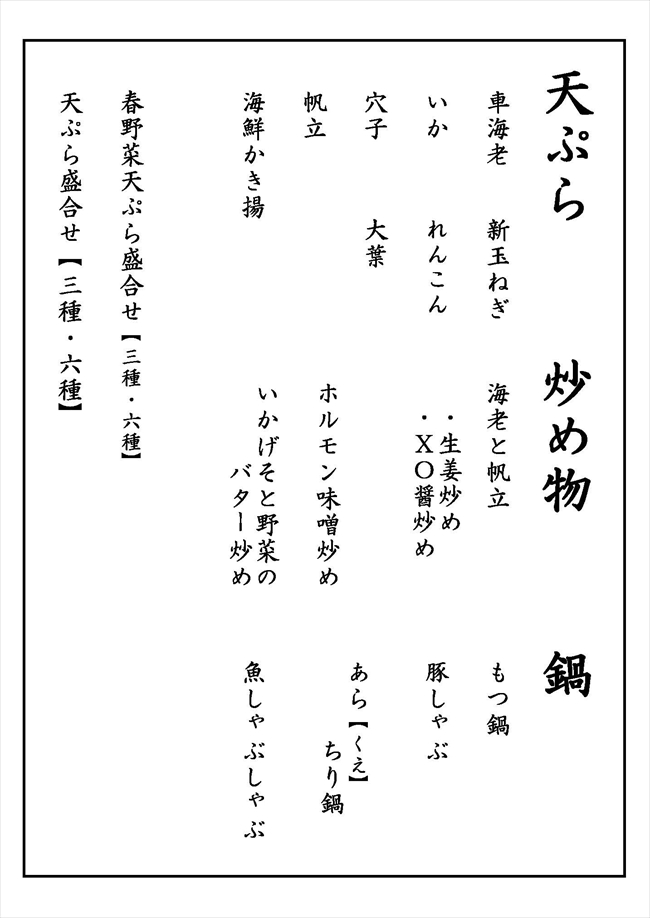 天ぷら
車海老
新玉ねぎ
いか
れんこん
穴子
大葉
帆立
海鮮かき揚
春野菜天ぷら盛合せ【三種・六種】
天ぷら盛合せ【三種・六種】
炒め物
海老と帆立
・生姜炒め
・XO醤炒め
ホルモン味噌炒め
いかげそと野菜の
バター炒め
鍋
もつ鍋
豚しゃぶ
あら【くえ】
ちり鍋
魚しゃぶしゃぶ